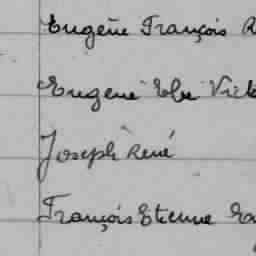 Eugène François
Eugène Elie Vict
Joseph René
François Etienne